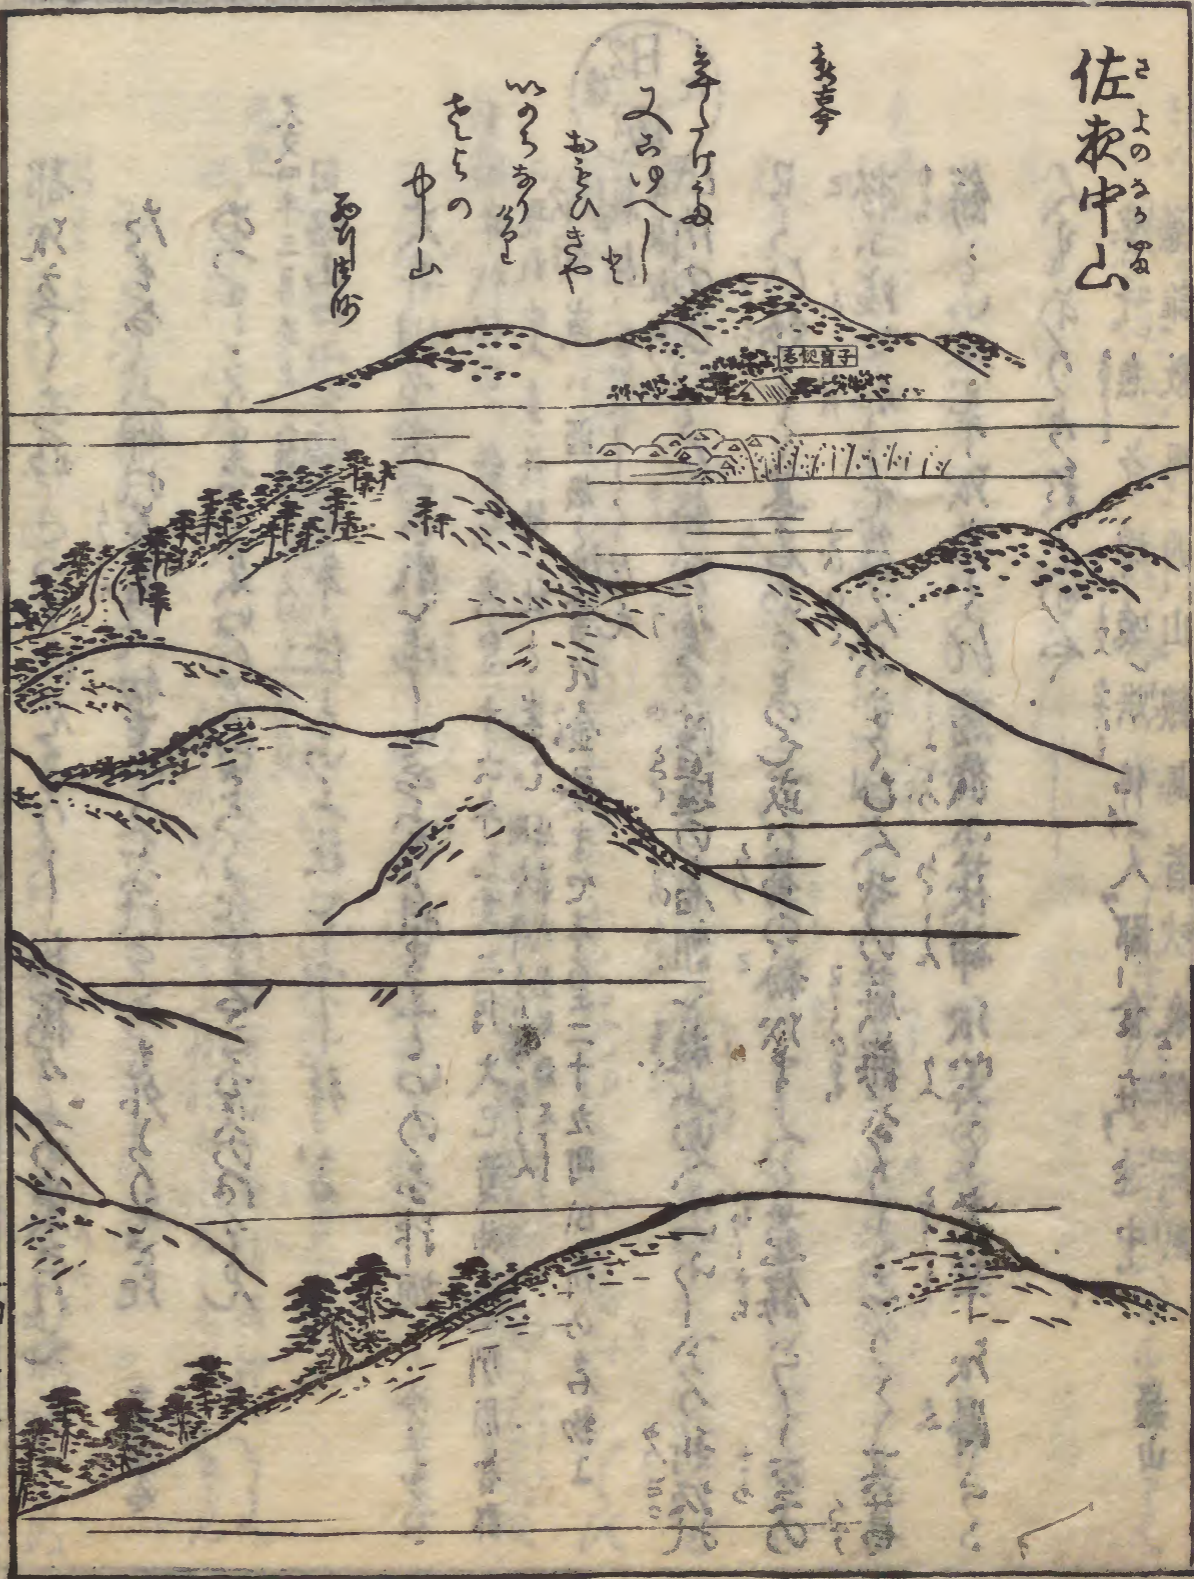 佐夜中山
さよのなか山
新古今
年たけて
又こゆへしと
おもひきや
いのちなりけり
さよの
中山
西行法師
子育観音